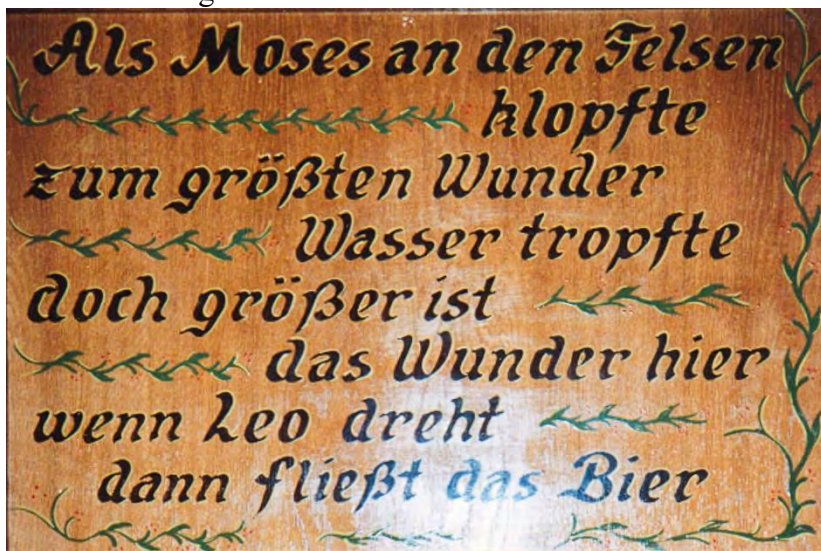 Als Moses an den Felsen
klopfte
zum größten Wunder
Wasser tropfte
doch größer ist
das Wunder hier
wenn Leo dreht
dann fließt das Bier